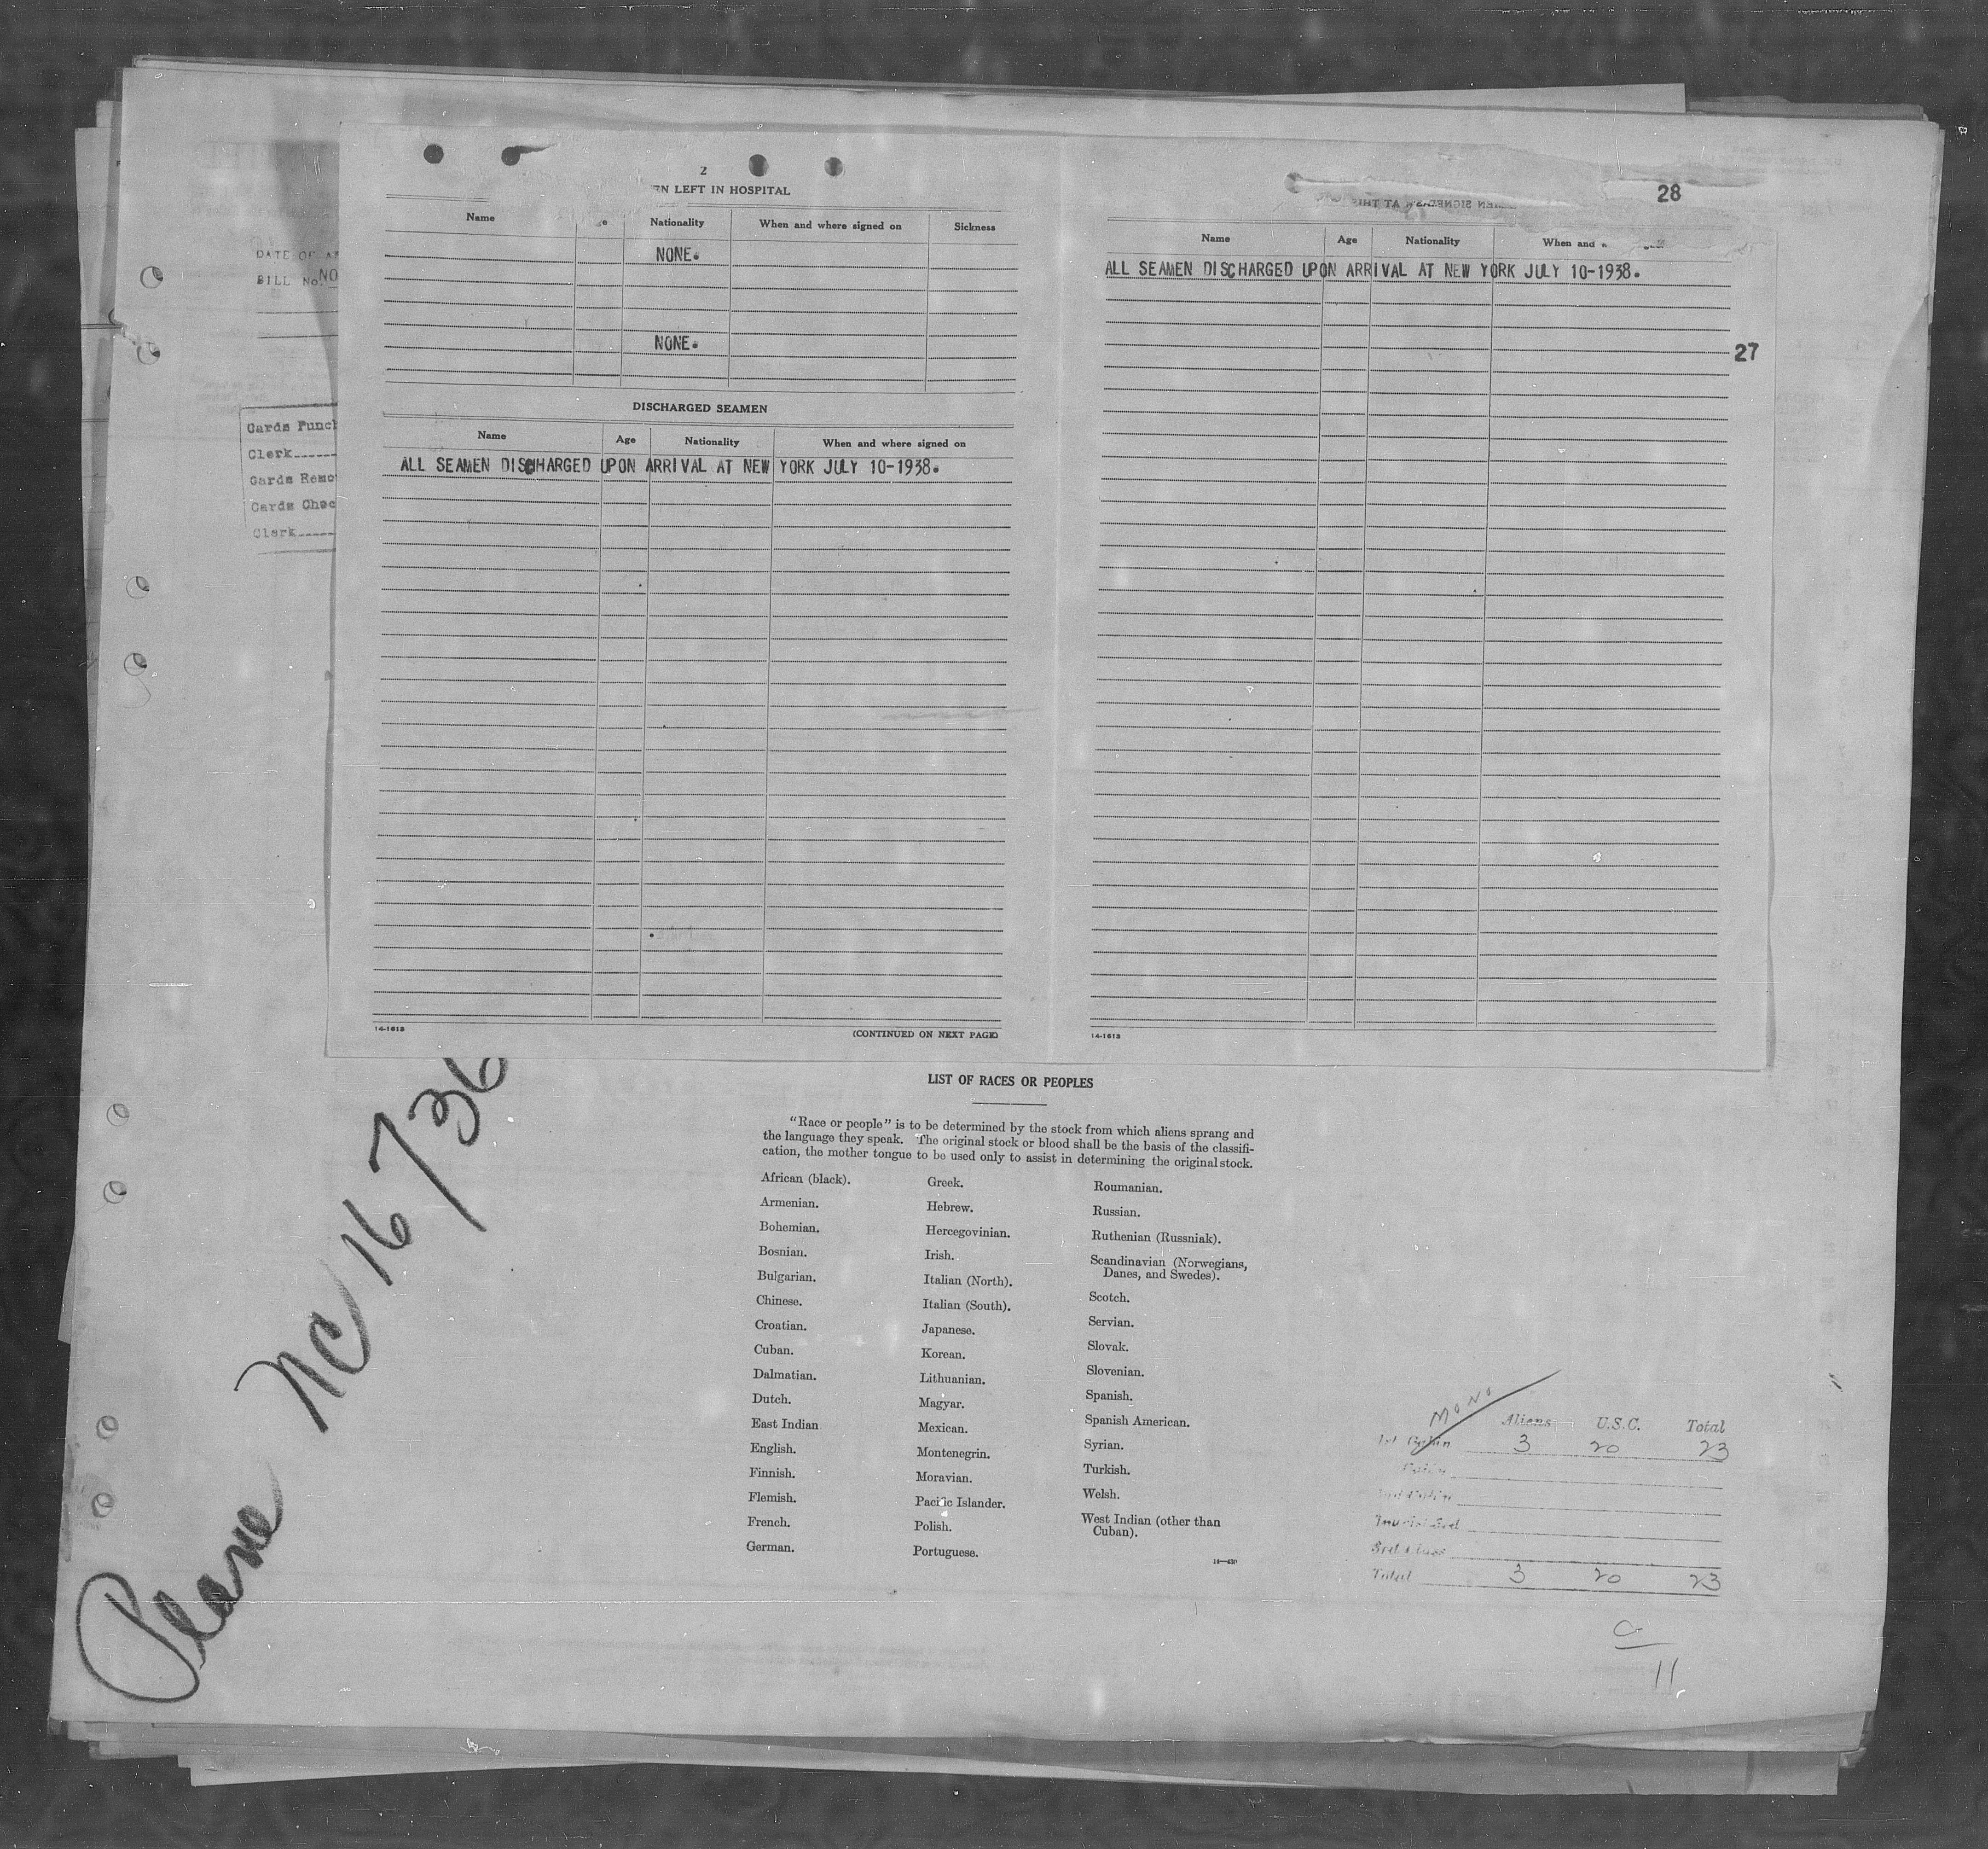 2
EN LEFT IN HOSPITAL
Name Nationality When and where signed on Sickness
NONE.
NONE.
DISCHARGED SEAMEN
Name Age Nationality When and where signed on
ALL SEAMEN DISCHARGED UPON ARRIVAL AT NEW YORK JULY 10-1938.
14-1613
(CONTINUED ON NEXT PAGE)
28
Name Age Nationality When and
ALL SEAMEN DISCHARGED UPON ARRIVAL AT NEW YORK JULY 10-1938.
27
14-1613
DATE OF
BILL No. NO
Cards Punc
Clerk
Cards Remo
Cards Chec
Clerk
Plane NC 16736
LIST OF RACES OR PEOPLES
"Race or people" is to be determined by the stock from which aliens sprang and
the language they speak. The original stock or blood shall be the basis of the classifi-
cation, the mother tongue to be used only to assist in determining the original stock.
African (black).
Armenian.
Bohemian.
Bosnian.
Bulgarian.
Chinese.
Croatian.
Cuban.
Dalmatian.
Dutch.
East Indian
English.
Finnish.
Flemish.
French.
German.
Greek.
Hebrew.
Hercegovinian.
Irish.
Italian (North).
Italian (South).
Japanese.
Korean.
Lithuanian.
Magyar.
Mexican.
Montenegrin.
Moravian.
Pacific Islander.
Polish.
Portuguese.
Roumanian.
Russian.
Ruthenian (Russniak).
Scandinavian (Norwegians,
Danes, and Swedes).
Scotch.
Servian.
Slovak.
Slovenian.
Spanish.
Spanish American.
Syrian.
Turkish.
Welsh.
West Indian (other than
Cuban).
MONO
Aliens U.S.C. Total
1st Cabin 3 20 23
Total 3 20 23
11